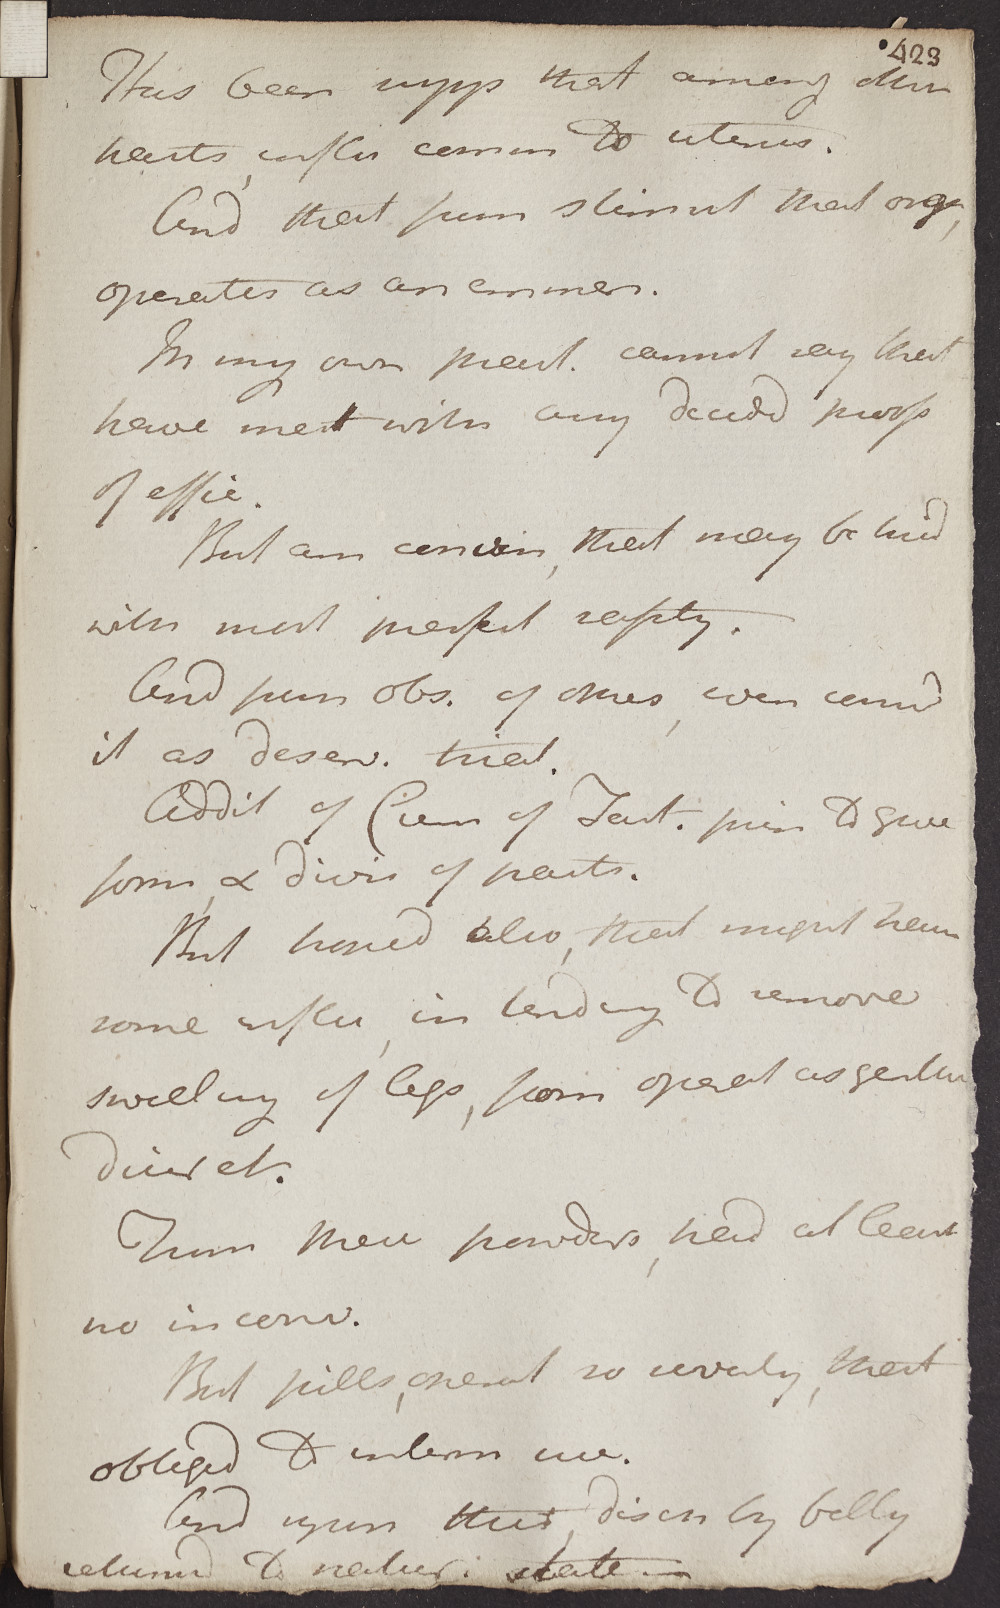 423
Has been supps that among other
parts, influ commu to uterus.
And that from stimul that orga,
operates as an emmen.
In my own pract. cannot say that
have met with any decided proofs
of effic.
But am convin, that may be tried
with most perfect safety.
And from obs. of others, even consid
it as deserv. trial.
Addit of Crem of Tart. prin to give
form, & divis of parts.
But hoped also, that might have
some influ, in tending to remove
swelling of legs, from operat as gentle
diuret.
From these powders, had at least
no inconv.
But pills, operat so severly, that
obliged to interm use.
And upon this, disch by belly
returnd to natur. state